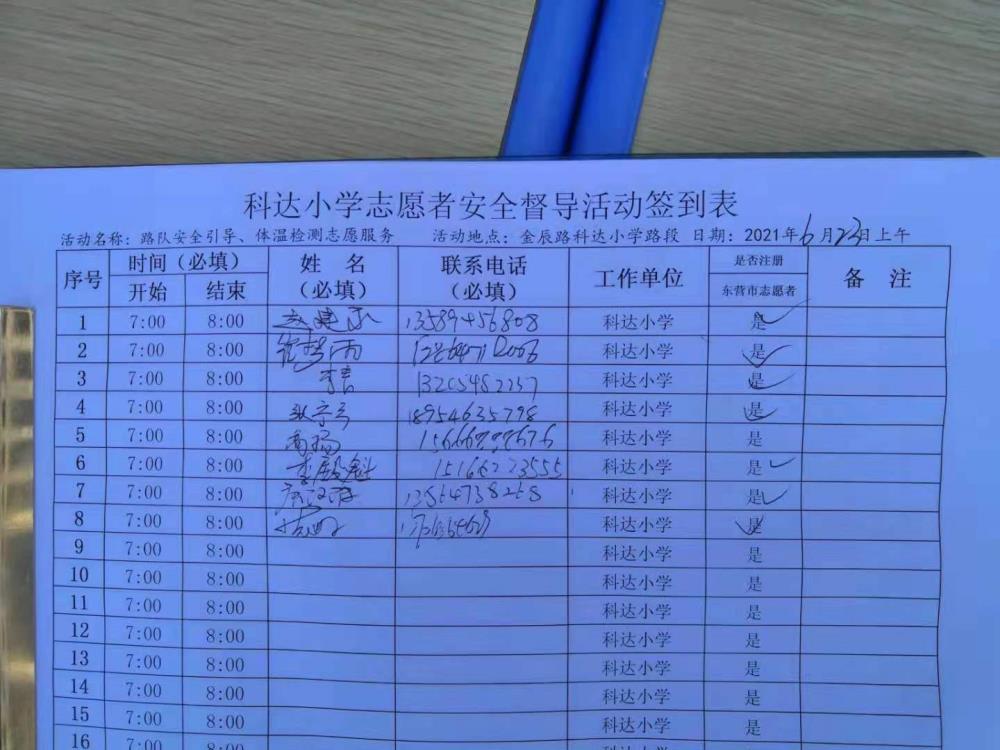 科达小学志愿者安全督导活动签到表
活动名称：路队安全引导、体温检测志愿服务 活动地点：金辰路科达小学路段 日期：2021年6月23日上午
序号 时间（必填） 姓名（必填） 联系电话（必填） 工作单位 是否注册东营市志愿者 备注
开始 结束
1 7:00 8:00 13589456808 科达小学 是
2 7:00 8:00 科达小学 是
3 7:00 8:00 李青 13205482237 科达小学 是
4 7:00 8:00 18954635798 科达小学 是
5 7:00 8:00 科达小学 是
6 7:00 8:00 15166273555 科达小学 是
7 7:00 8:00 13564738268 科达小学 是
8 7:00 8:00 科达小学 是
9 7:00 8:00 科达小学 是
10 7:00 8:00 科达小学 是
11 7:00 8:00 科达小学 是
12 7:00 8:00 科达小学 是
13 7:00 8:00 科达小学 是
14 7:00 8:00 科达小学 是
15 7:00 8:00 科达小学 是
16 7:00 8:00 科达小学